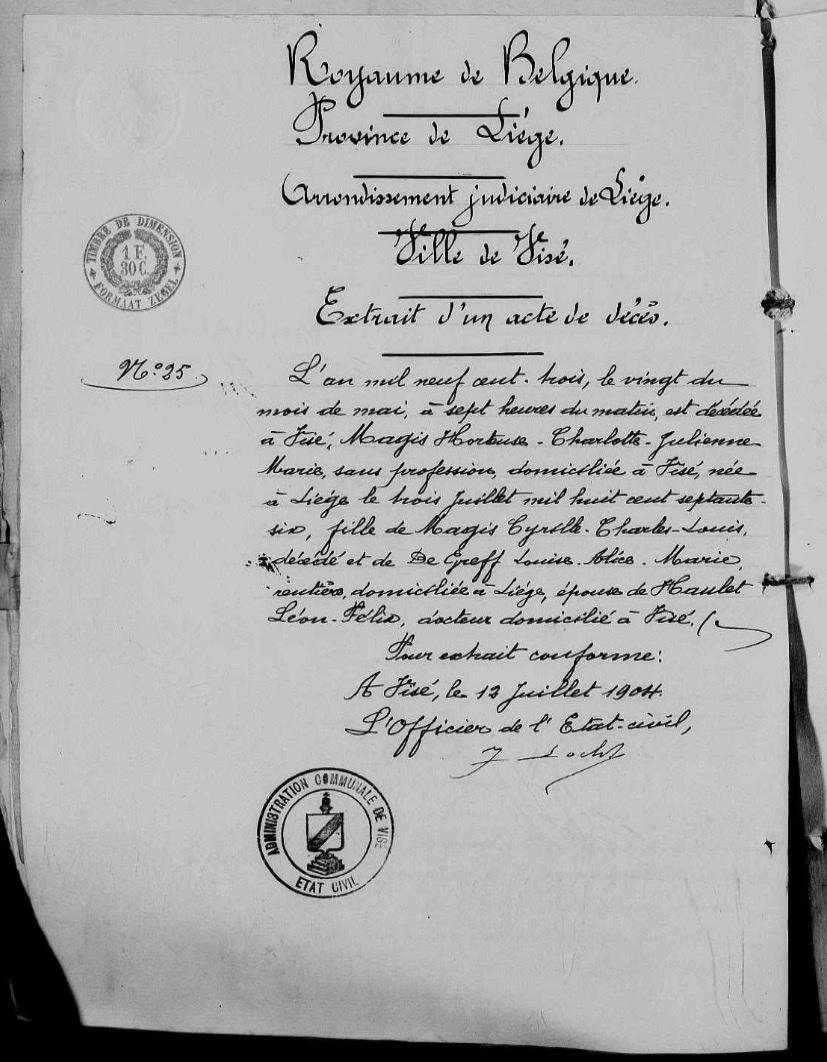 Royaume de Belgique.
Province de Liége.
Arrondissement judiciaire de Liége.
Ville de Visé.
Extrait d'un acte de décès.
TIMBRE DE DIMENSION
1 F.
30 C.
FORMAAT ZEGEL
N° 25
L'an mil neuf cent-trois, le vingt du
mois de mai, à sept heures du matin, est décédée
à Visé, Magis Hortense-Charlotte-Julienne
Marie, sans profession, domiciliée à Visé, née
à Liége le trois Juillet mil huit cent septante-
six, fille de Magis Cyrille-Charles-Louis,
décédé et de De Greff Louise-Alice-Marie,
rentière, domiciliée à Liége, épouse de Haulet
Léon-Félix, docteur domicilié à Visé.
Pour extrait conforme:
A Visé, le 12 Juillet 1904.
L'Officier de l'Etat-civil,
ADMINISTRATION COMMUNALE DE VISÉ
ETAT CIVIL